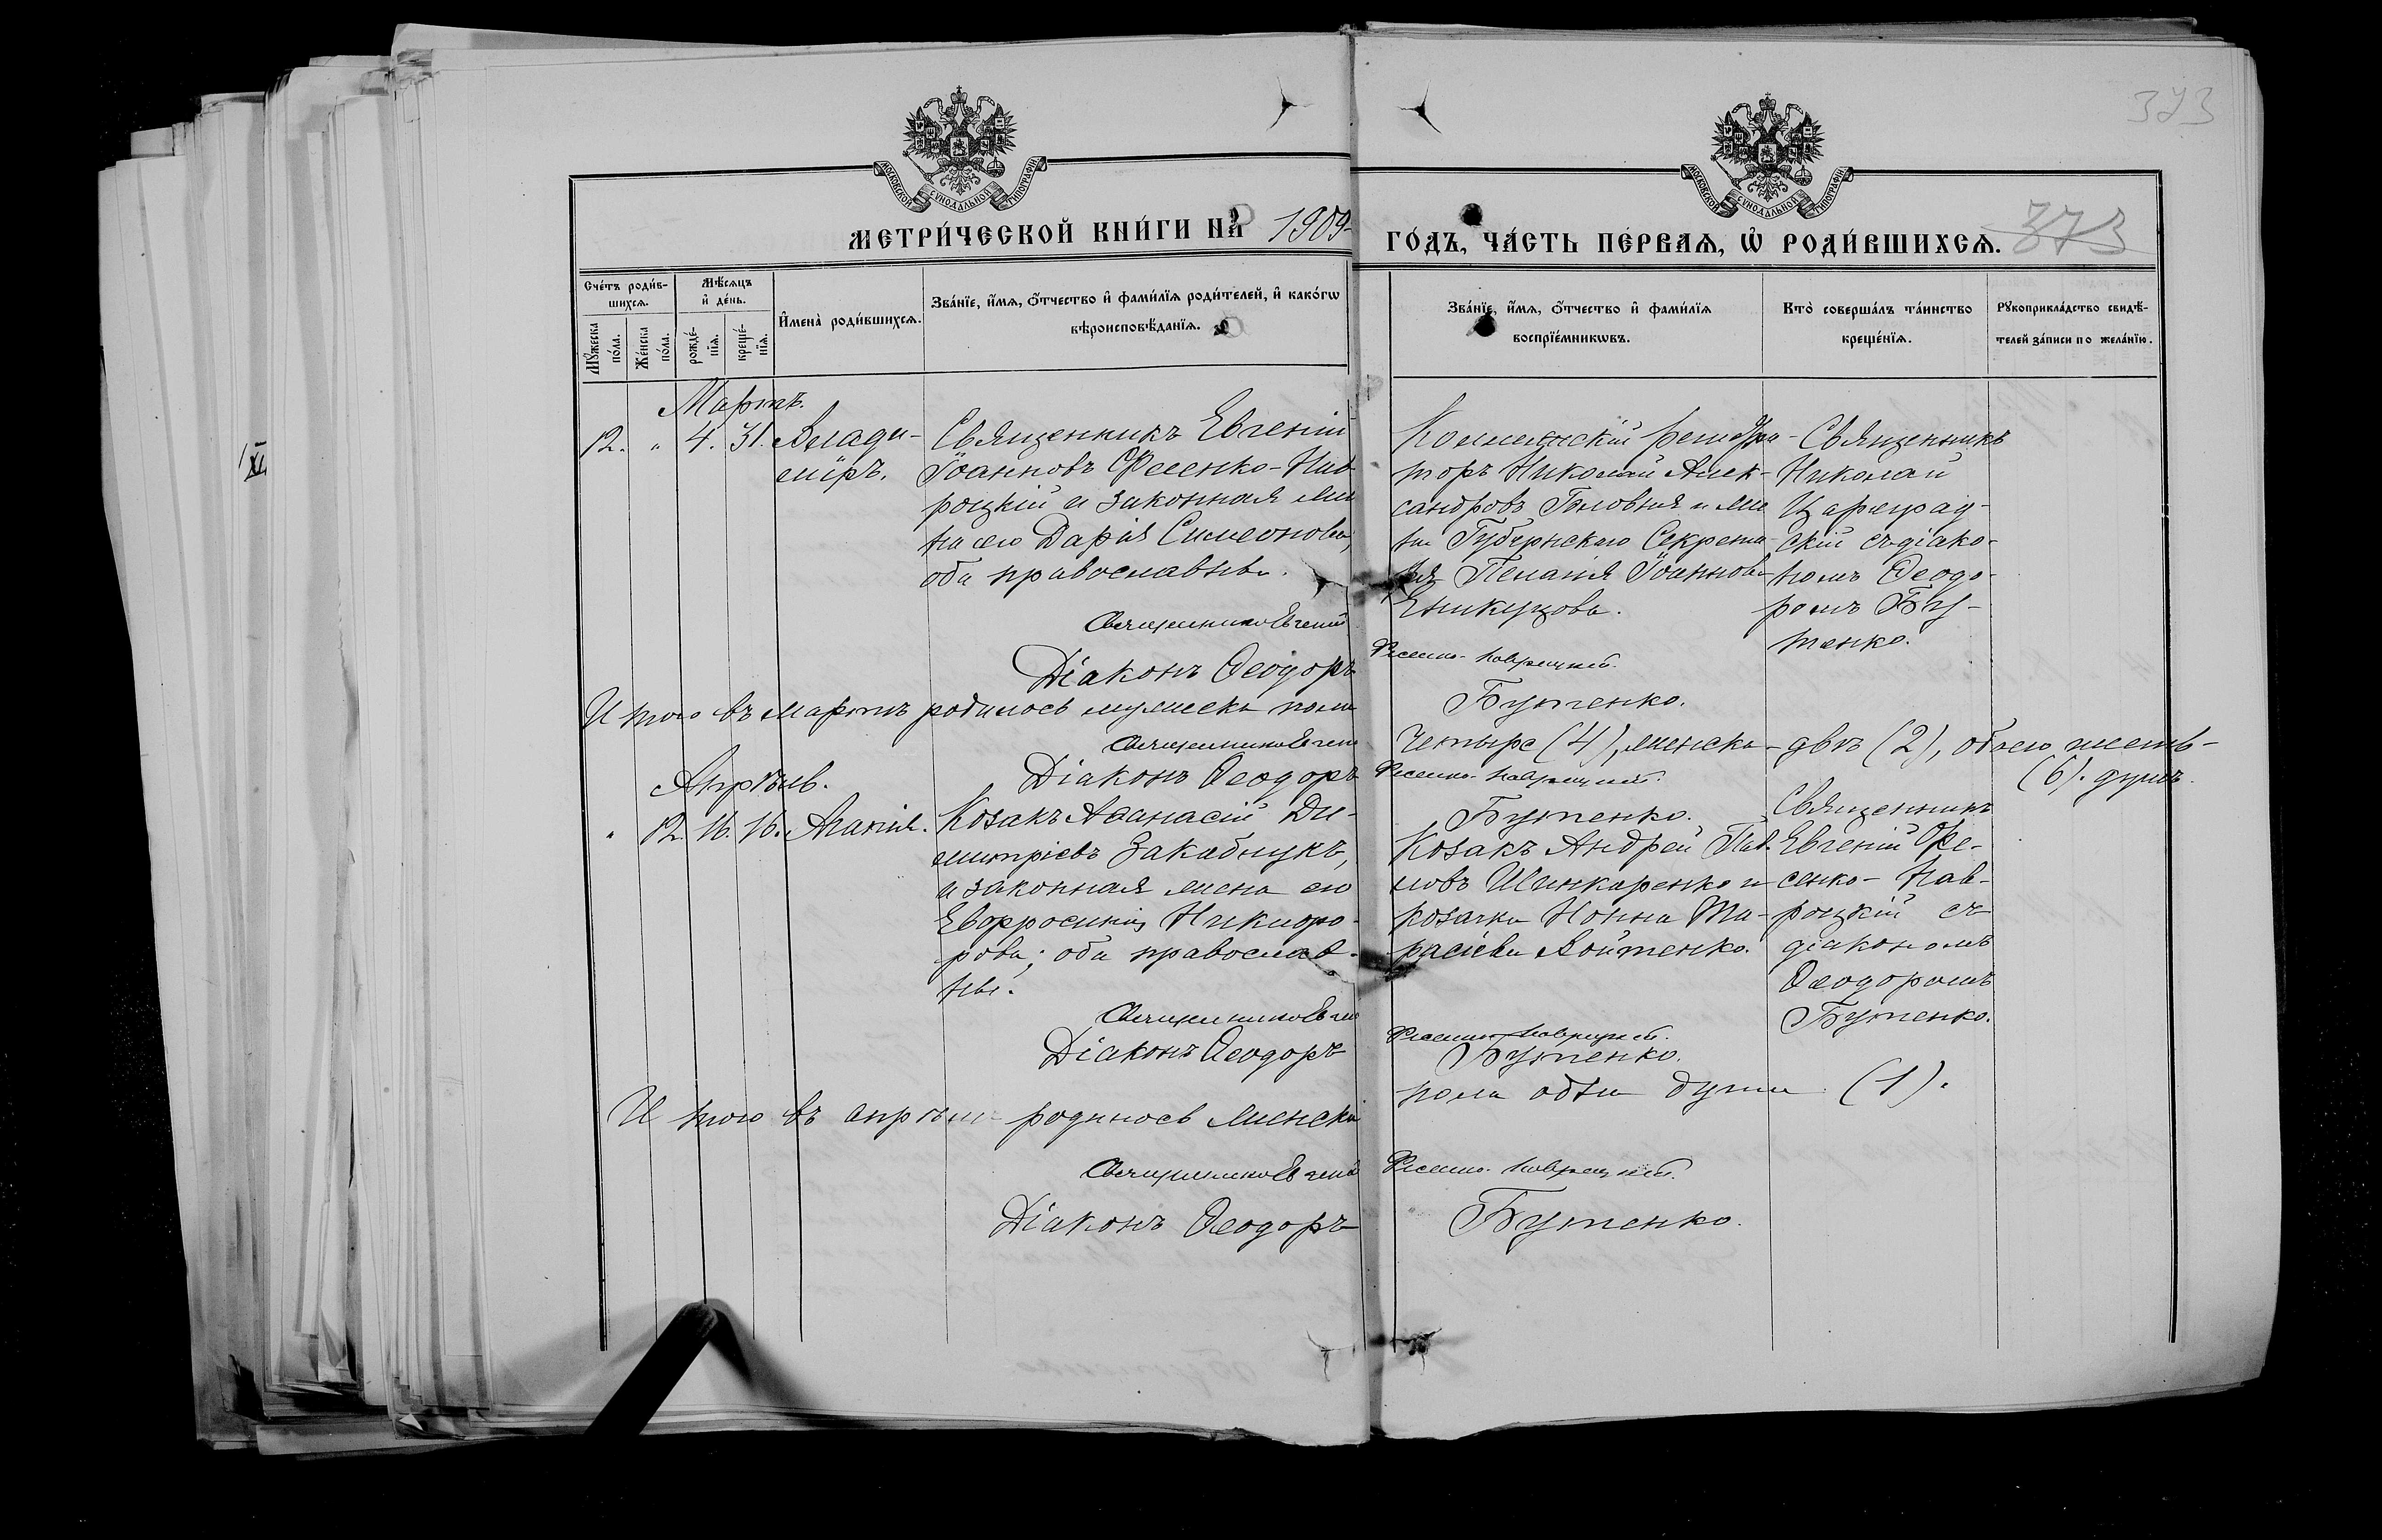 373
МОСКОВСКОЙ СѴНОДАЛЬНОЙ ТИПОГРАФІИ
МОСКОВСКОЙ СѴНОДАЛЬНОЙ ТИПОГРАФІИ
МЕТРИ́ЧЕСКОЙ КНИ́ГИ НА 1909
ГО́ДЪ, ЧА́СТЬ ПЕ́РВАѦ, Ѡ҆ РОДИ́ВШИХСѦ. 373
Сче́тъ роди́в-
шихсѧ.
Мꙋ́жеска по́ла.
Же́нска по́ла.
Мѣ́сѧцъ
и҆ де́нь.
рожде́-нїѧ.
креще́-нїѧ.
И҆мена̀ роди́вшихсѧ.
Зва́нїе, и҆́мѧ, ѻ҆́тчество и҆ фами́лїѧ роди́телей, и҆ како́гѡ
вѣроисповѣ́данїѧ.
Зва́нїе, и҆́мѧ, ѻ҆́тчество и҆ фами́лїѧ
воспрїе́мникѡвъ.
Кто̀ соверша́лъ та́инство
креще́нїѧ.
Рꙋкоприкла́дство свидѣ́-
телей за́писи по жела́нїю.
Мартъ.
12. " 4. 31. Влади-
міръ.
Священникъ Евгеній
Іоанновъ Фесенко-Нав
роцкій и законная же
на его Дарія Симеонова,
оба православные.
Коллежскій регистра-
торъ Николай Алек-
сандровъ Головня и же
на Губернскаго Секрета
ря Пелагія Іоаннова
Священникъ
Николай
Цареград-
скій съ діако-
номъ Ѳеодо-
ромъ Бу-
тенко.
Священникъ Евгеній
Фесенко-Навроцкій.
Діаконъ Ѳеодоръ
Бутенко.
И того въ мартѣ родилось мужеска пола
четыре (4), женска - двѣ (2), обоего шесть-
(6). душъ.
Священникъ Евгеній
Фесенко-Навроцкій.
Діаконъ Ѳеодоръ
Бутенко.
Апрѣль.
" 12. 16. 16. Агапія.
Козакъ Аѳанасій Ди-
митріевъ
и законная жена его
Евфросинія Никифо-
рова; оба православ-
ные.
Козакъ Андрей Пав-
ловъ Шинкаренко и
козачка Нонна Та-
расіева Войтенко.
Священникъ
Евгеній Фе-
сенко-Нав-
роцкій съ
діакономъ
Ѳеодоромъ
Бутенко.
Священникъ Евгеній
Фесенко-Навроцкій.
Діаконъ Ѳеодоръ
Бутенко.
И того въ апрѣлѣ родилось женска
пола одна душа (1).
Священникъ Евгеній
Фесенко-Навроцкій.
Діаконъ Ѳеодоръ
Бутенко.